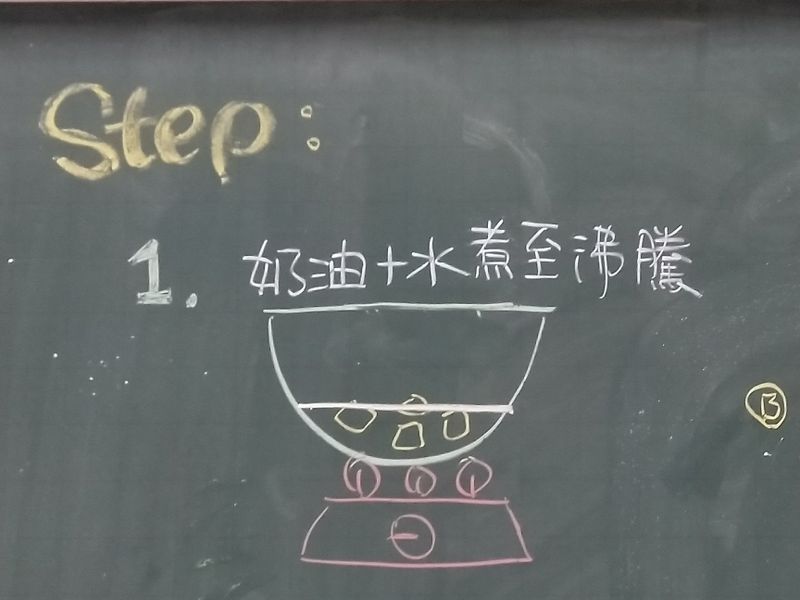 Step:
1. 奶油+水煮至沸騰
B